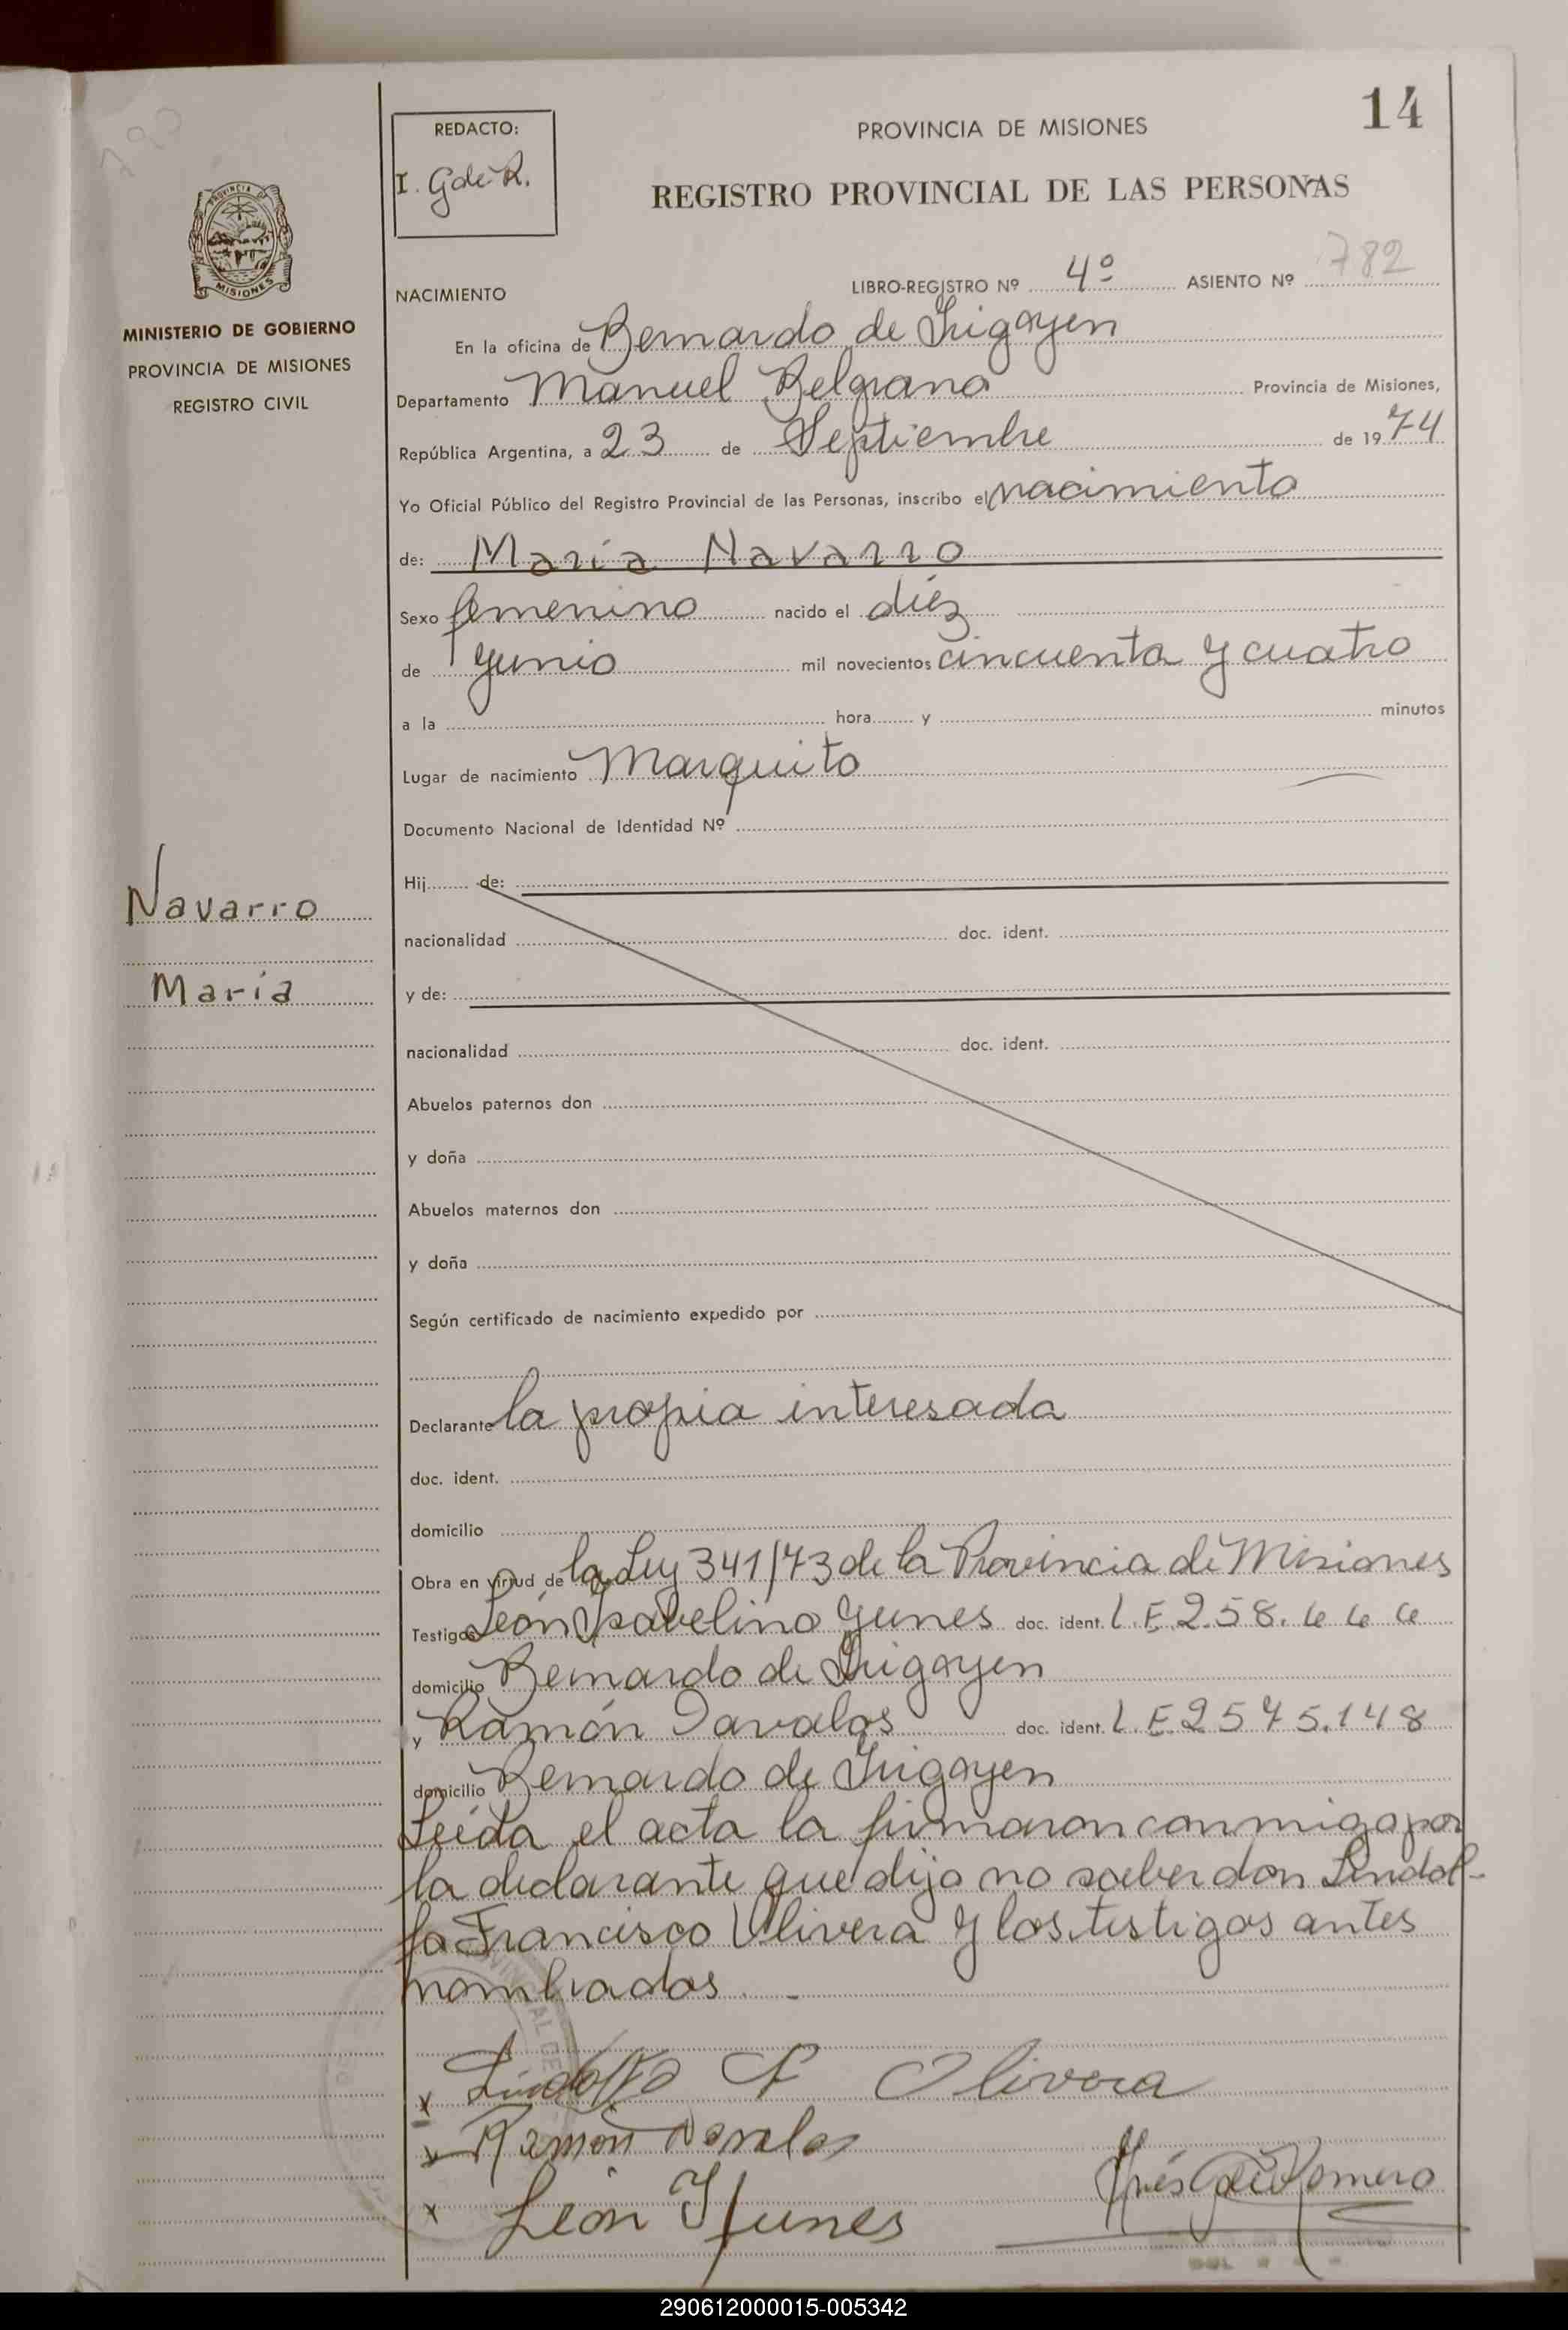 14
REDACTO:
I. G de R.
PROVINCIA DE MISIONES
REGISTRO PROVINCIAL DE LAS PERSONAS
PROVINCIA DE
MISIONES
MINISTERIO DE GOBIERNO
PROVINCIA DE MISIONES
REGISTRO CIVIL
Navarro
María
NACIMIENTO
LIBRO-REGISTRO Nº 4º ASIENTO Nº 782
En la oficina de Bernardo de Irigoyen
Departamento Manuel Belgrano Provincia de Misiones,
República Argentina, a 23 de Septiembre de 1974
Yo Oficial Público del Registro Provincial de las Personas, inscribo el nacimiento
de: María Navarro
Sexo femenino nacido el diéz
de Junio mil novecientos cincuenta y cuatro
a la hora y minutos
Lugar de nacimiento Marquito
Documento Nacional de Identidad Nº
Hij de:
nacionalidad doc. ident.
y de:
nacionalidad doc. ident.
Abuelos paternos don
y doña
Abuelos maternos don
y doña
Según certificado de nacimiento expedido por
Declarante la propia interesada
doc. ident.
domicilio
Obra en virtud de la Ley 341/73 de la Provincia de Misiones
Testigos León Yunes doc. ident. L.E.258.
domicilio Bernardo de Irigoyen
y Ramón Davalos doc. ident. L.E.2575.148
domicilio Bernardo de Irigoyen
Leída el acta la firmaron conmigo por
la declarante que dijo no saber don Lindol-
fo Francisco Olivera y los testigos antes
nombrados.
x Lindolfo F Olivera
x Ramón Davalos
x León Y Yunes
Inés G de Romero
290612000015-005342